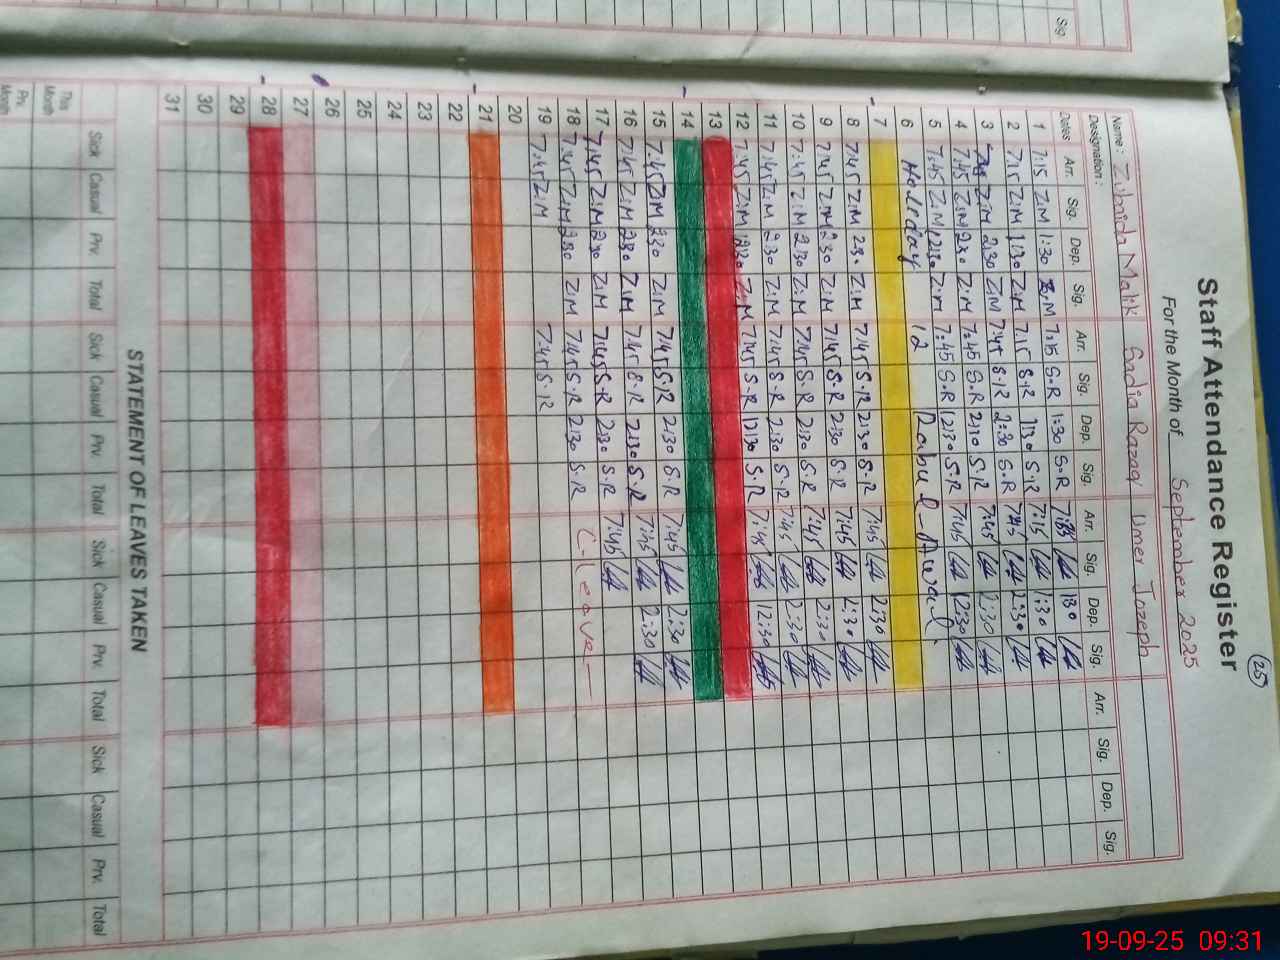 Sig
25
Staff Attendance Register
For the Month of September 2025
Name: Zubaida Malik Sadia Razaq Umer Jozeph
Designation:
Dates Arr. Sig. Dep. Sig. Arr. Sig. Dep. Sig. Arr. Sig. Dep. Sig. Arr. Sig. Dep. Sig.
1 7:15 Z.M 1:30 Z.M 7:15 S.R 1:30 S.R 130
2 7:15 Z.M 1:30 Z.M 7:15 S.R 1:30 S.R 7:15 1:30
3 Z.M 2:30 Z.M 7:45 S.R 2:30 S.R 7:45 2:30
4 7:45 Z.M 2:30 Z.M 7:45 S.R 2:10 S.R 7:45 2:30
5 7:45 Z.M 12:30 Z.M 7:45 S.R 12:30 S.R 7:45 12:30
6 Holiday 12 Rabul-Awal
7
8 7:45 Z.M 2:30 Z.M 7:45 S.R 2:30 S.R 7:45 2:30
9 7:45 Z.M 2:30 Z.M 7:45 S.R 2:30 S.R 7:45 2:30
10 7:45 Z.M 2:30 Z.M 7:45 S.R 2:30 S.R 7:45 2:30
11 7:45 Z.M 2:30 Z.M 7:45 S.R 2:30 S.R 7:45 2:30
12 7:45 Z.M 12:30 Z.M 7:45 S.R 12:30 S.R 7:45 12:30
13
14
15 7:45 Z.M 2:30 Z.M 7:45 S.R 2:30 S.R 7:45 2:30
16 7:45 Z.M 2:30 Z.M 7:45 S.R 2:30 S.R 7:45 2:30
17 7:45 Z.M 2:30 Z.M 7:45 S.R 2:30 S.R 7:45
18 7:45 Z.M 2:30 Z.M 7:45 S.R 2:30 S.R C-leave-
19 7:45 Z.M 7:45 S.R
20
21
22
23
24
25
26
27
28
29
30
31
STATEMENT OF LEAVES TAKEN
Sick Casual Prv. Total Sick Casual Prv. Total Sick Casual Prv. Total Sick Casual Prv. Total
This Month
Prv. Month
19-09-25 09:31